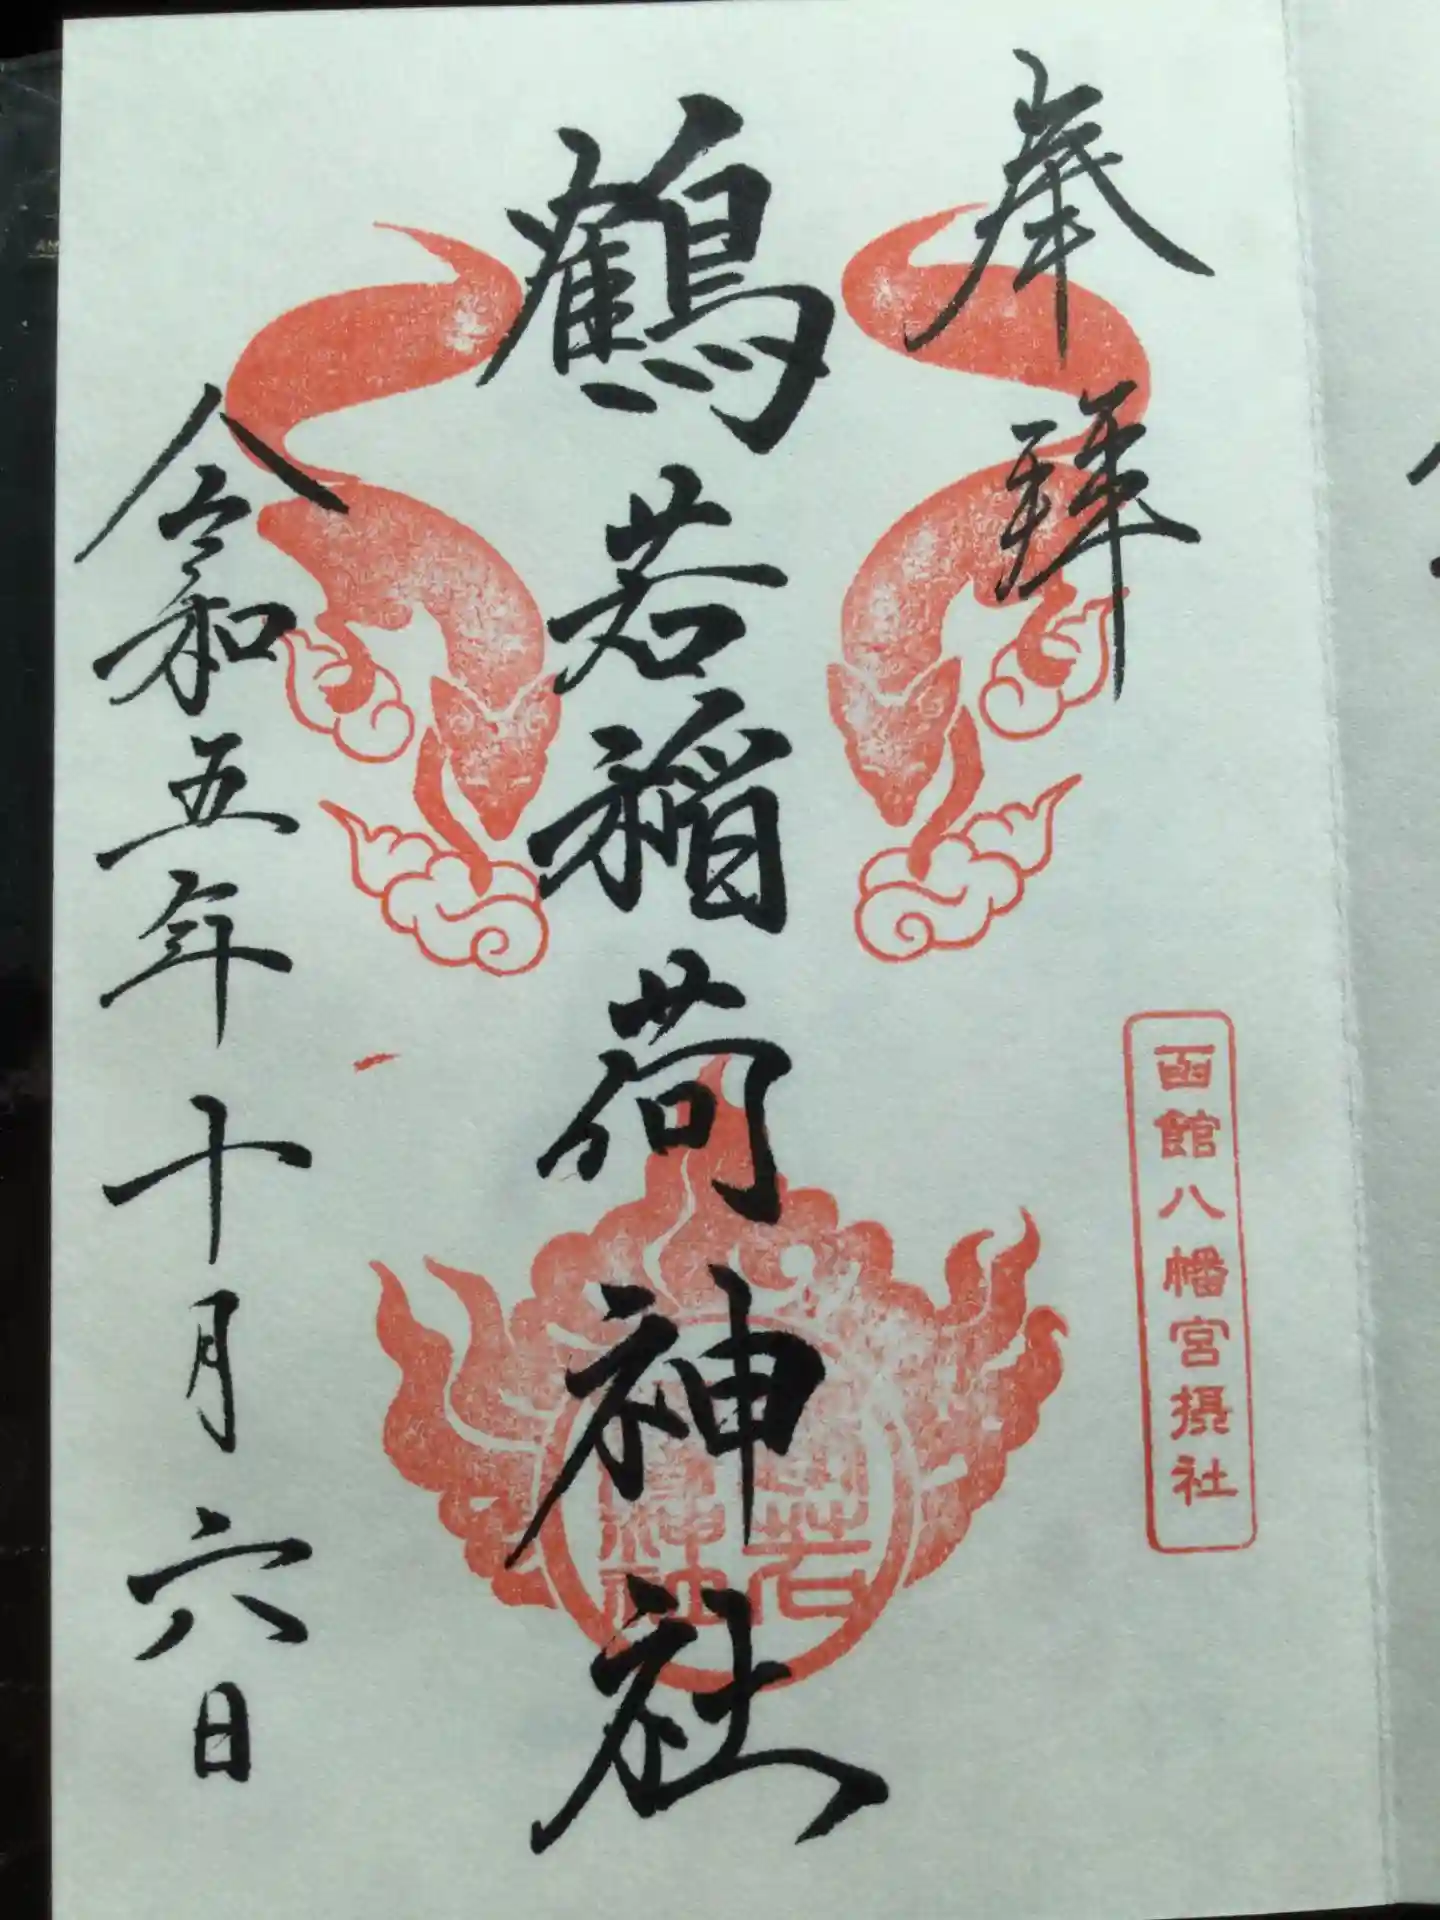 奉拝
函館八幡宮摂社
鶴若稲荷神社
令和五年十月六日